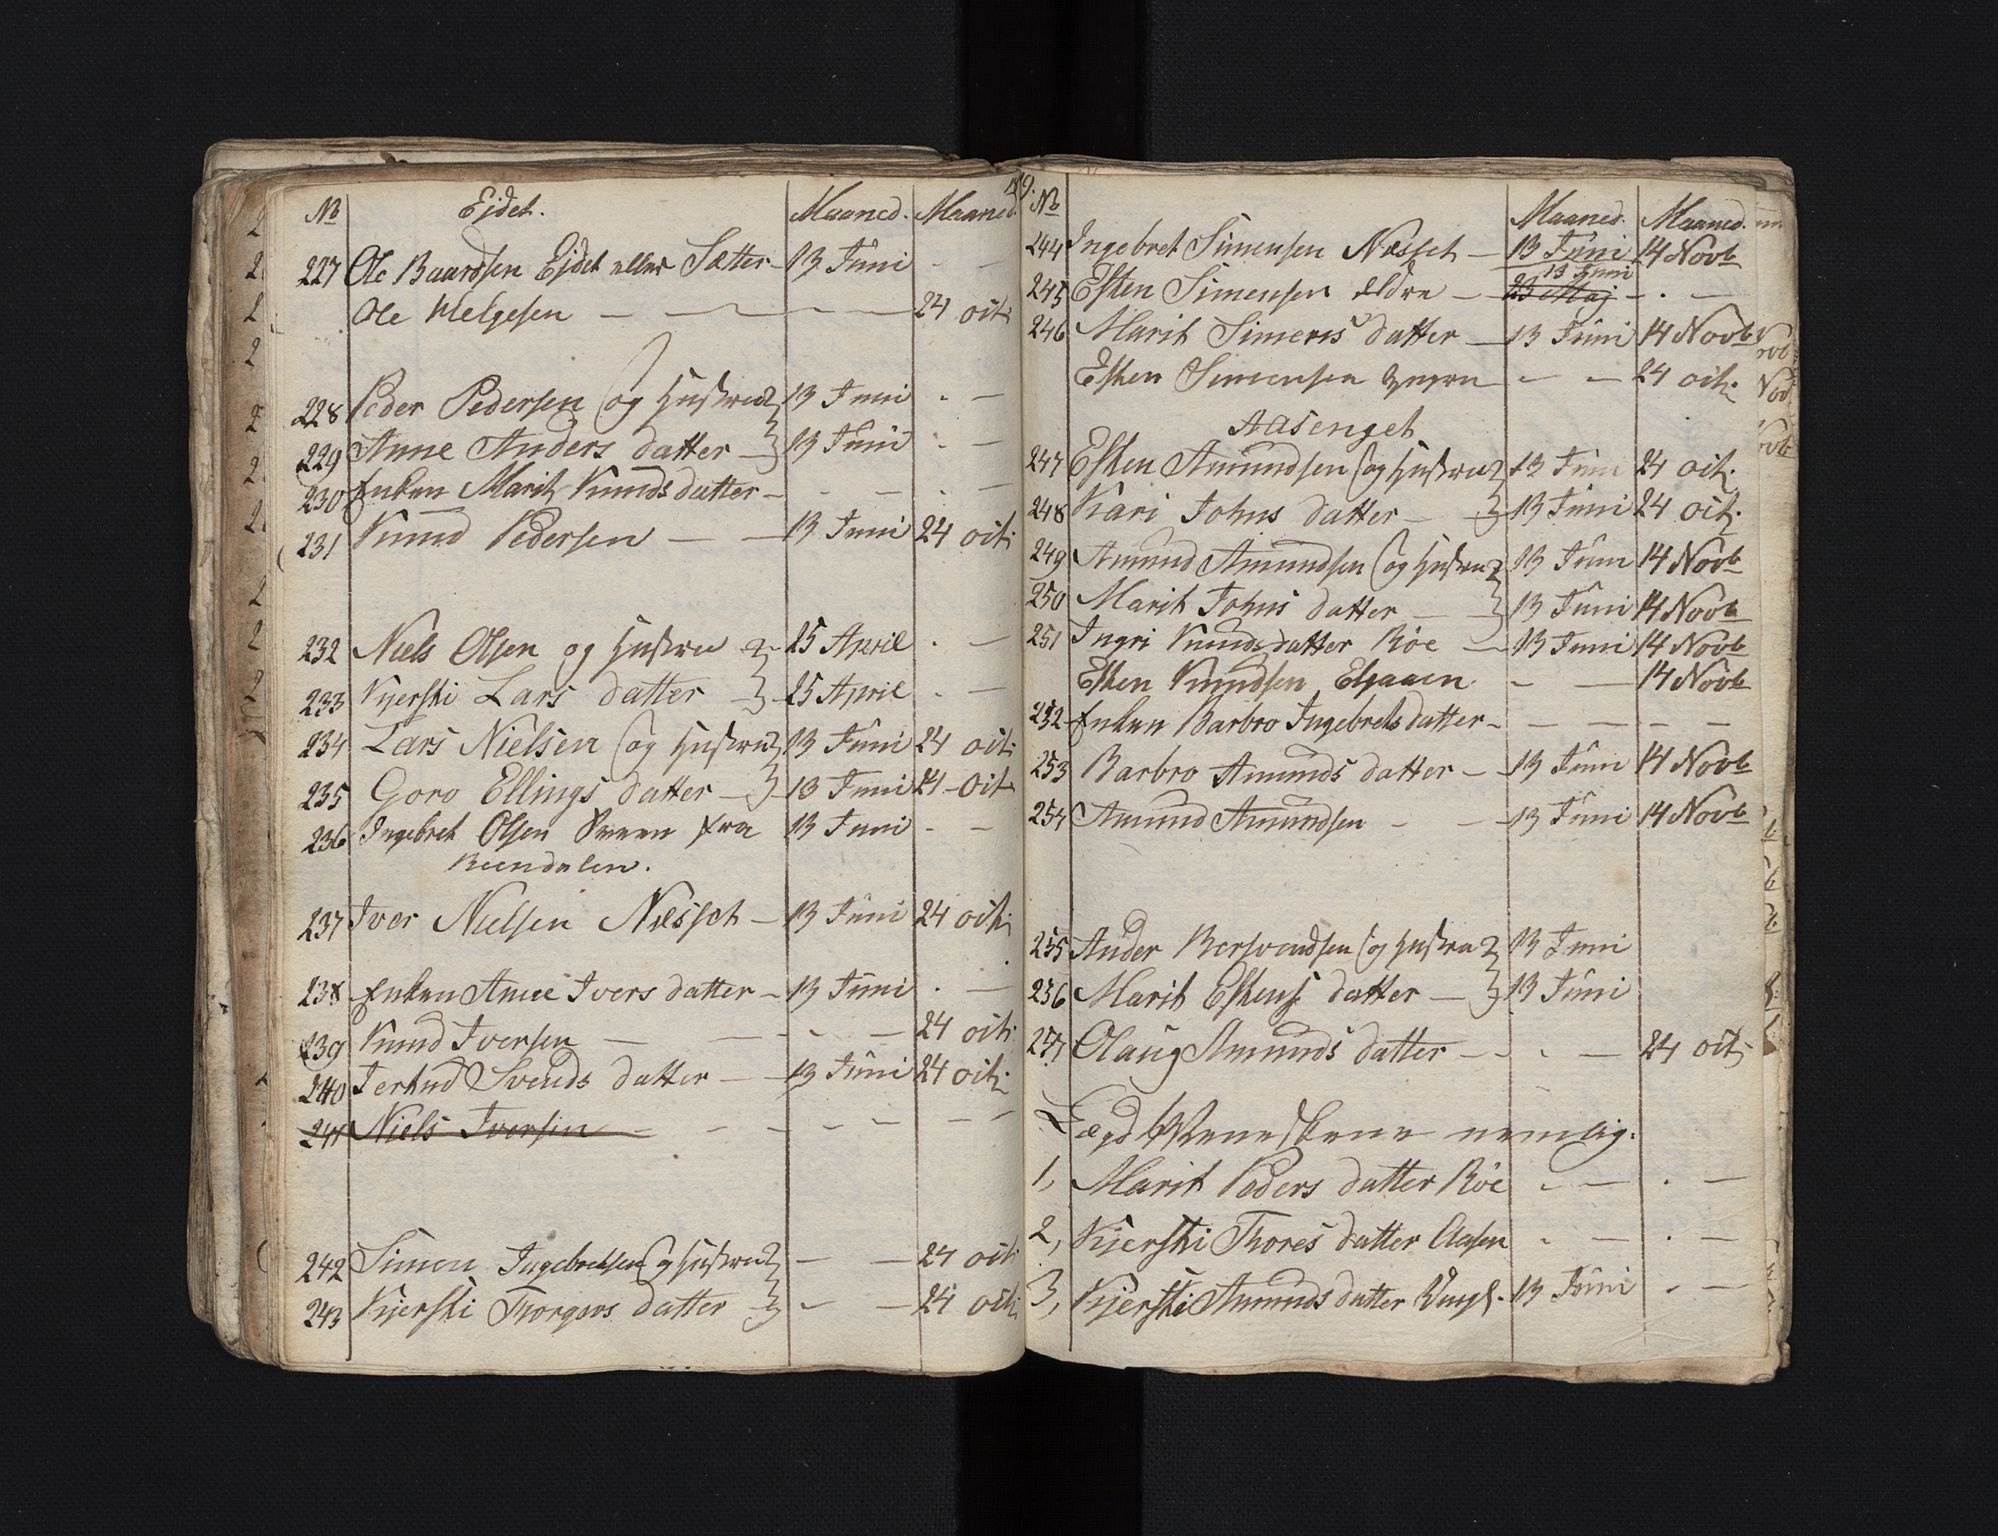 No Ejdet. Maaned. Maaned.
227 Ole Baardsen Ejdet eller Sætter - 13 Juni - -
Ole Helgesen - - - - 24 oct:
228 Peder Pedersen (og Hustrue 13 Juni - -
229 Anne Anders datter - 13 Juni - -
230 Enken Marit Knuds datter - - - - -
231 Knud Pedersen - - 13 Juni 24 oct:
232 Niels Olsen og Hustrue 25 April - -
233 Kjersti Lars datter - 25 April - -
234 Lars Nielsen (og Hustrue 13 Juni 24 oct:
235 Goro Ellings datter - 13 Juni 24 - Oct
236 Ingebret Olsen fra 13 Juni - -
Reendalen.
237 Iver Nielsen Næsset - 13 Juni 24 oct:
238 Enken Anne Ivers datter - 13 Juni - -
239 Knud Iversen - - - - 24 oct:
240 Jertrud Svends datter - - 13 Juni 24 oct:
241 Niels Iversen - - - - - -
242 Simon Ingebretsen (og Hustrue - - 24 oct:
243 Kjersti Thorgers datter - - 24 oct:
189.
No Maaned. Maaned.
244 Ingebret Simensen Næsset - 13 Juni 14 Novb
13 Juni
245 Esten Simensen ældre - 23 Maj - . -
246 Marit Simens datter - 13 Juni 14 Novb
Esten Simensen yngre - - - 24 oct.
Aasenget
247 Esten Amundsen (og Hustrue 13 Juni 24 oct.
248 Kari Johns datter - - 13 Juni 24 oct.
249 Amund Amundsen (og Hustrue 13 Juni 14 Novb
250 Marit Johns datter - - 13 Juni 14 Novb
251 Ingri Knuds datter Röe - 13 Juni 14 Novb
Esten Knudsen Elgaaen - - 14 Novb
252 Enken Barbro Ingebrets datter - - - - -
253 Barbro Amunds datter - 13 Juni 14 Novb
254 Amund Amundsen - - 13 Juni 14 Novb
255 Ander Bersvendsen (og Hustrue 13 Juni
256 Marit Estens datter - 13 Juni
257 Olaug Amunds datter - - . - 24 oct:
Lægd nemlig.
1, Marit Peders datter Röe - - . -
2, Kjersti Thores datter Aasen - - . -
3, Kjersti Amunds datter 13 Juni . -